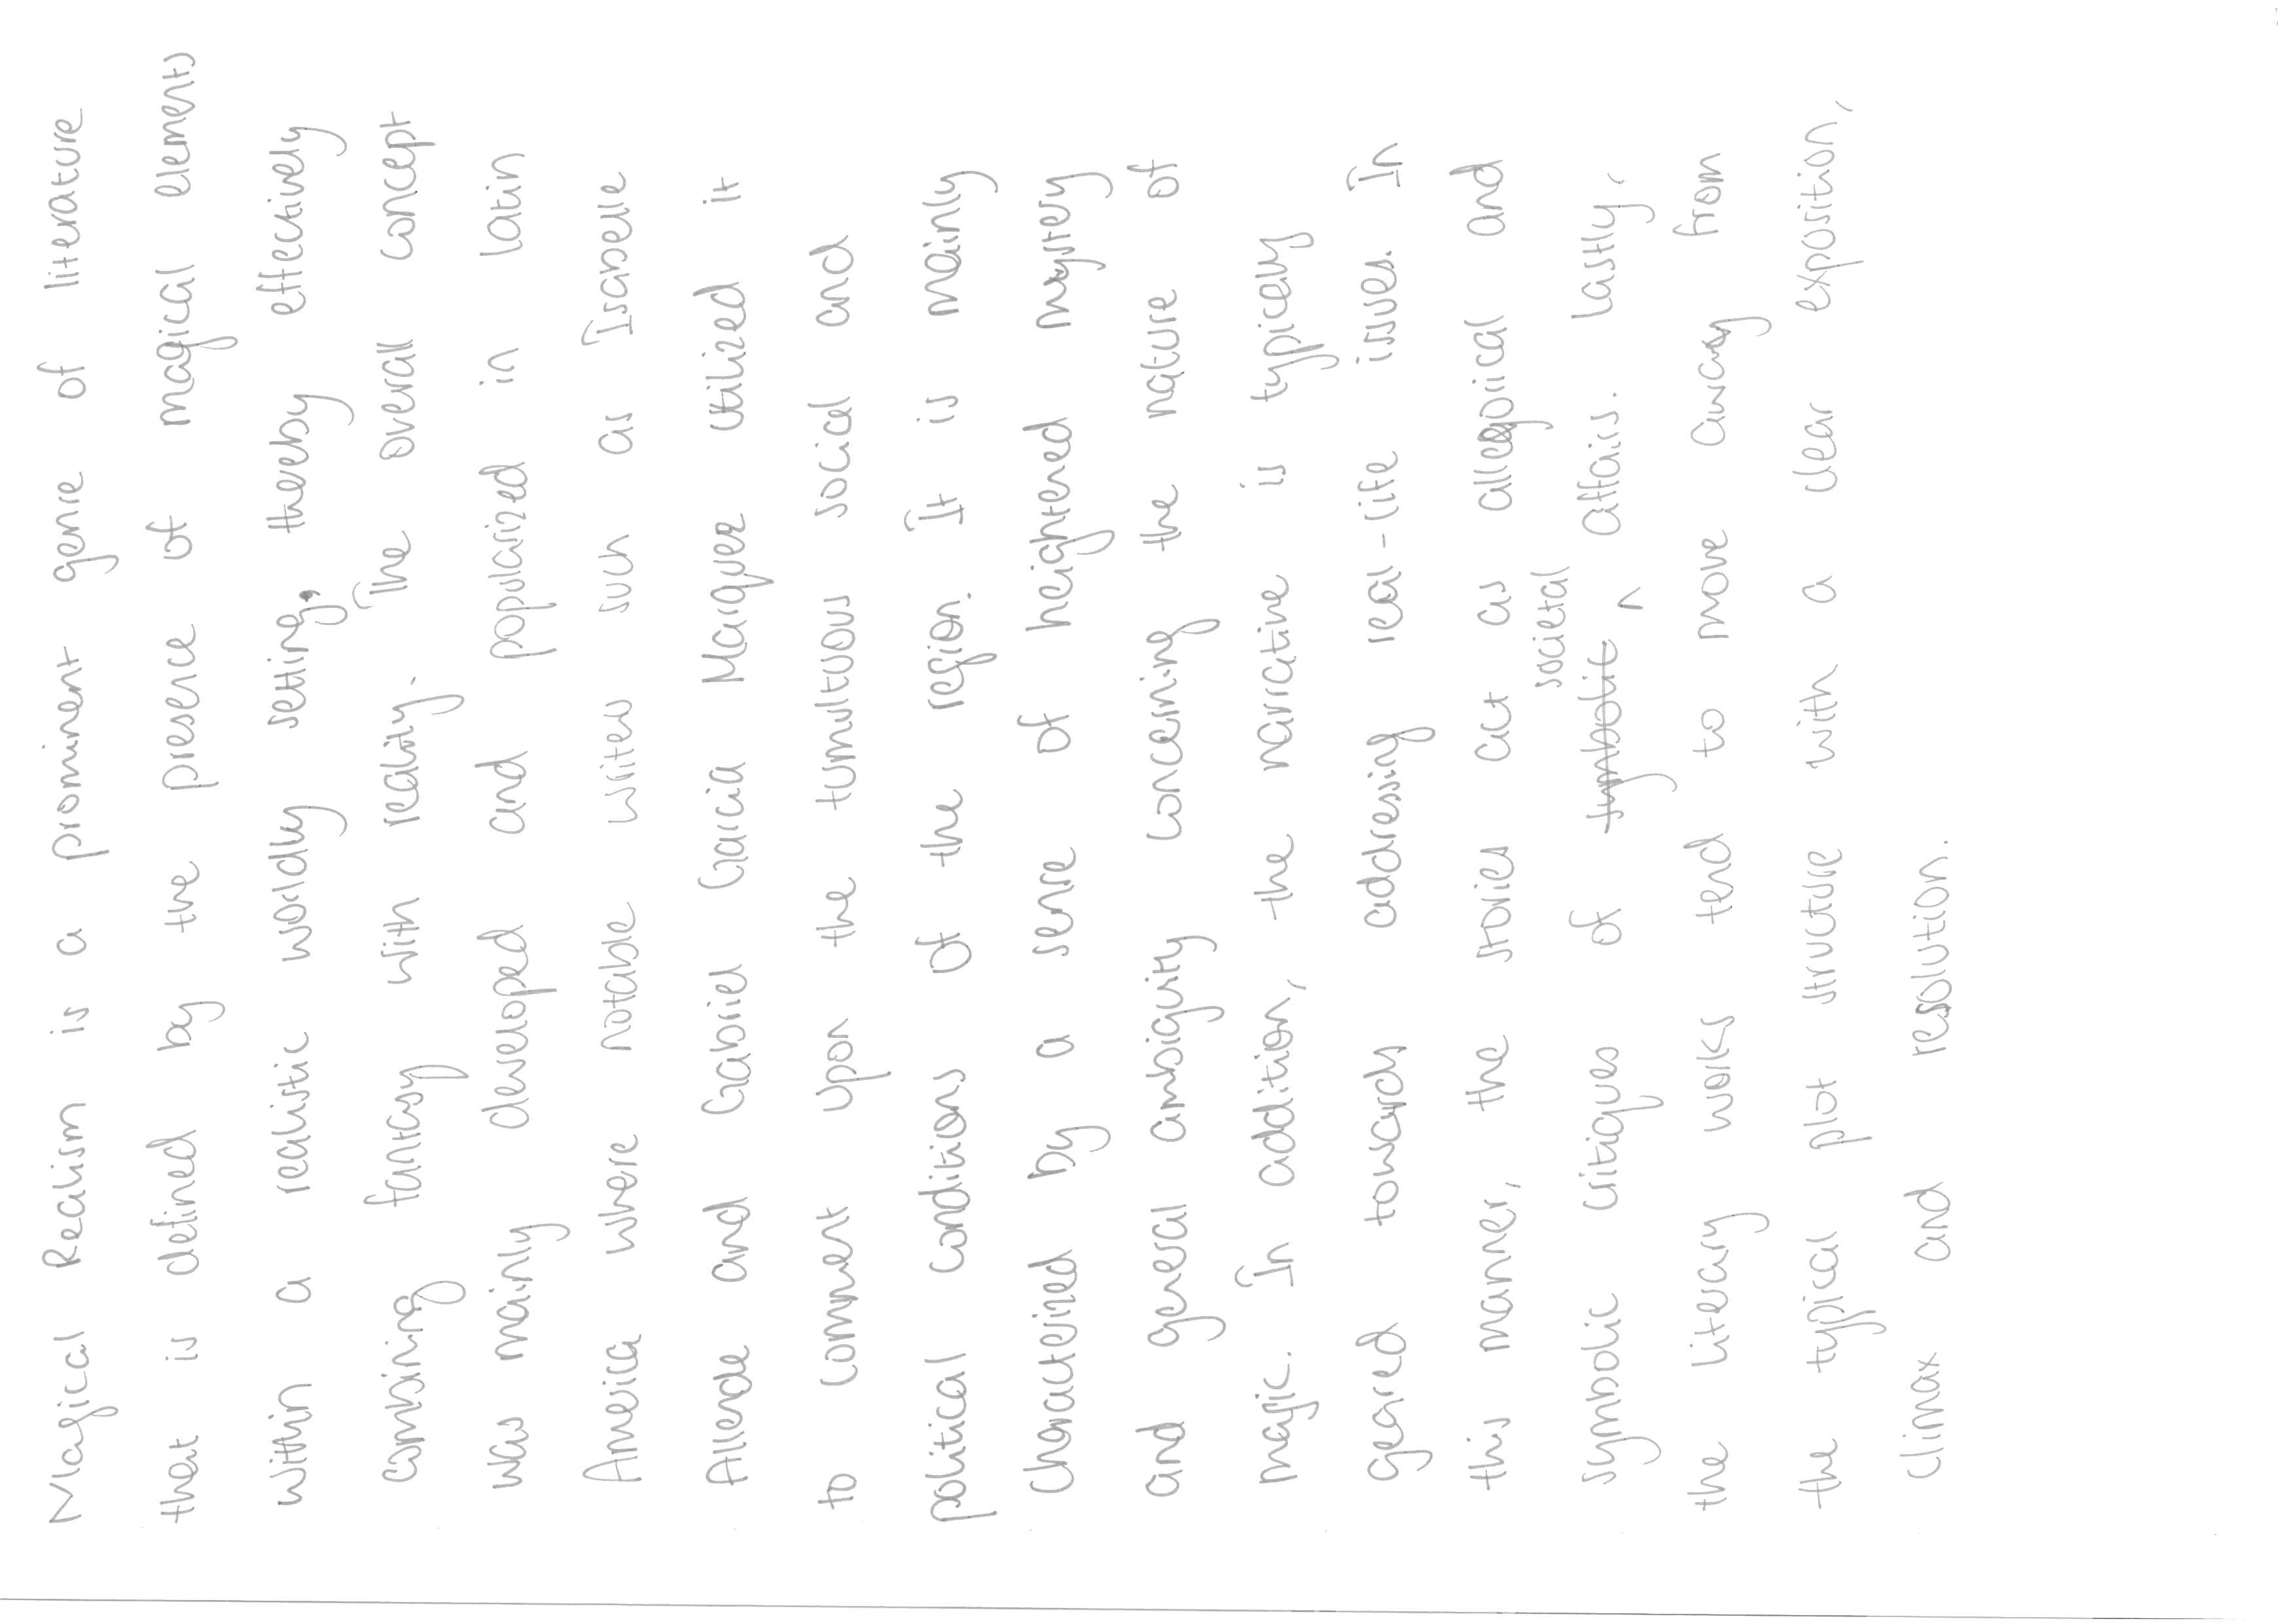 Magical Realism is a prominent genre of literature
that is defined by the presence of magical elements
within a realistic worldly setting, thereby effectively
combining fantasy with reality. The overall concept
was mainly developed and popularized in Latin
America where notable writers such as Isabelle
Allende and Gabriel Garcia Marquez utilized it
to comment upon the tumultuous social and
political conditions of the region. It is mainly
characterized by a sense of heightened mystery
and general ambiguity concerning the nature of
magic. In addition, the narrative is typically
geared towards addressing real-life issues. In
this manner, the stories act as allegorical and
societal
symbolic critiques of symbolic ^ affairs. Lastly,
the literary works tend to move away from
the typical plot structure with a clear exposition,
climax and resolution.